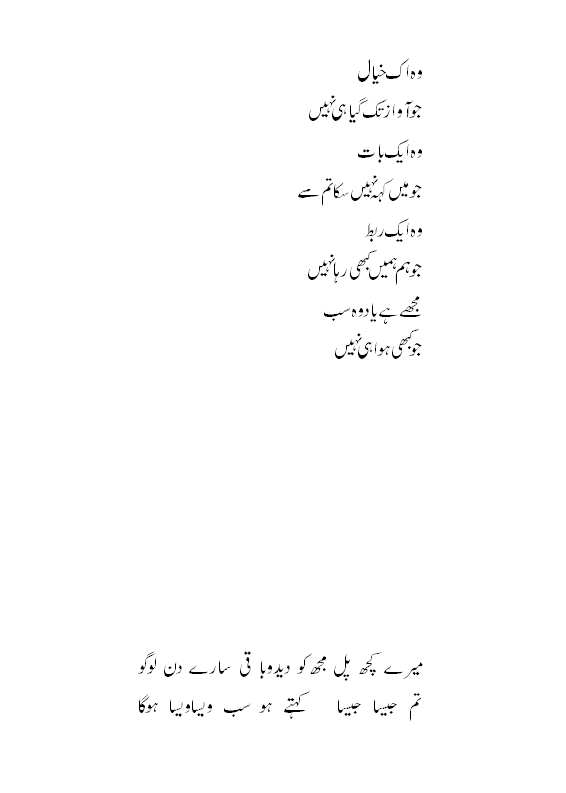 وہ اک خیال
جو آواز تک گیا ہی نہیں
وہ ایک بات
جو میں کہہ نہیں سکا تم سے
وہ ایک ربط
جو ہم ہمیں کبھی رہا نہیں
مجھے ہے یاد وہ سب
جو کبھی ہوا ہی نہیں
میرے کچھ پل مجھ کو دیدو باقی سارے دن لوگو
تم جیسا جیسا کہتے ہو سب ویسا ویسا ہوگا